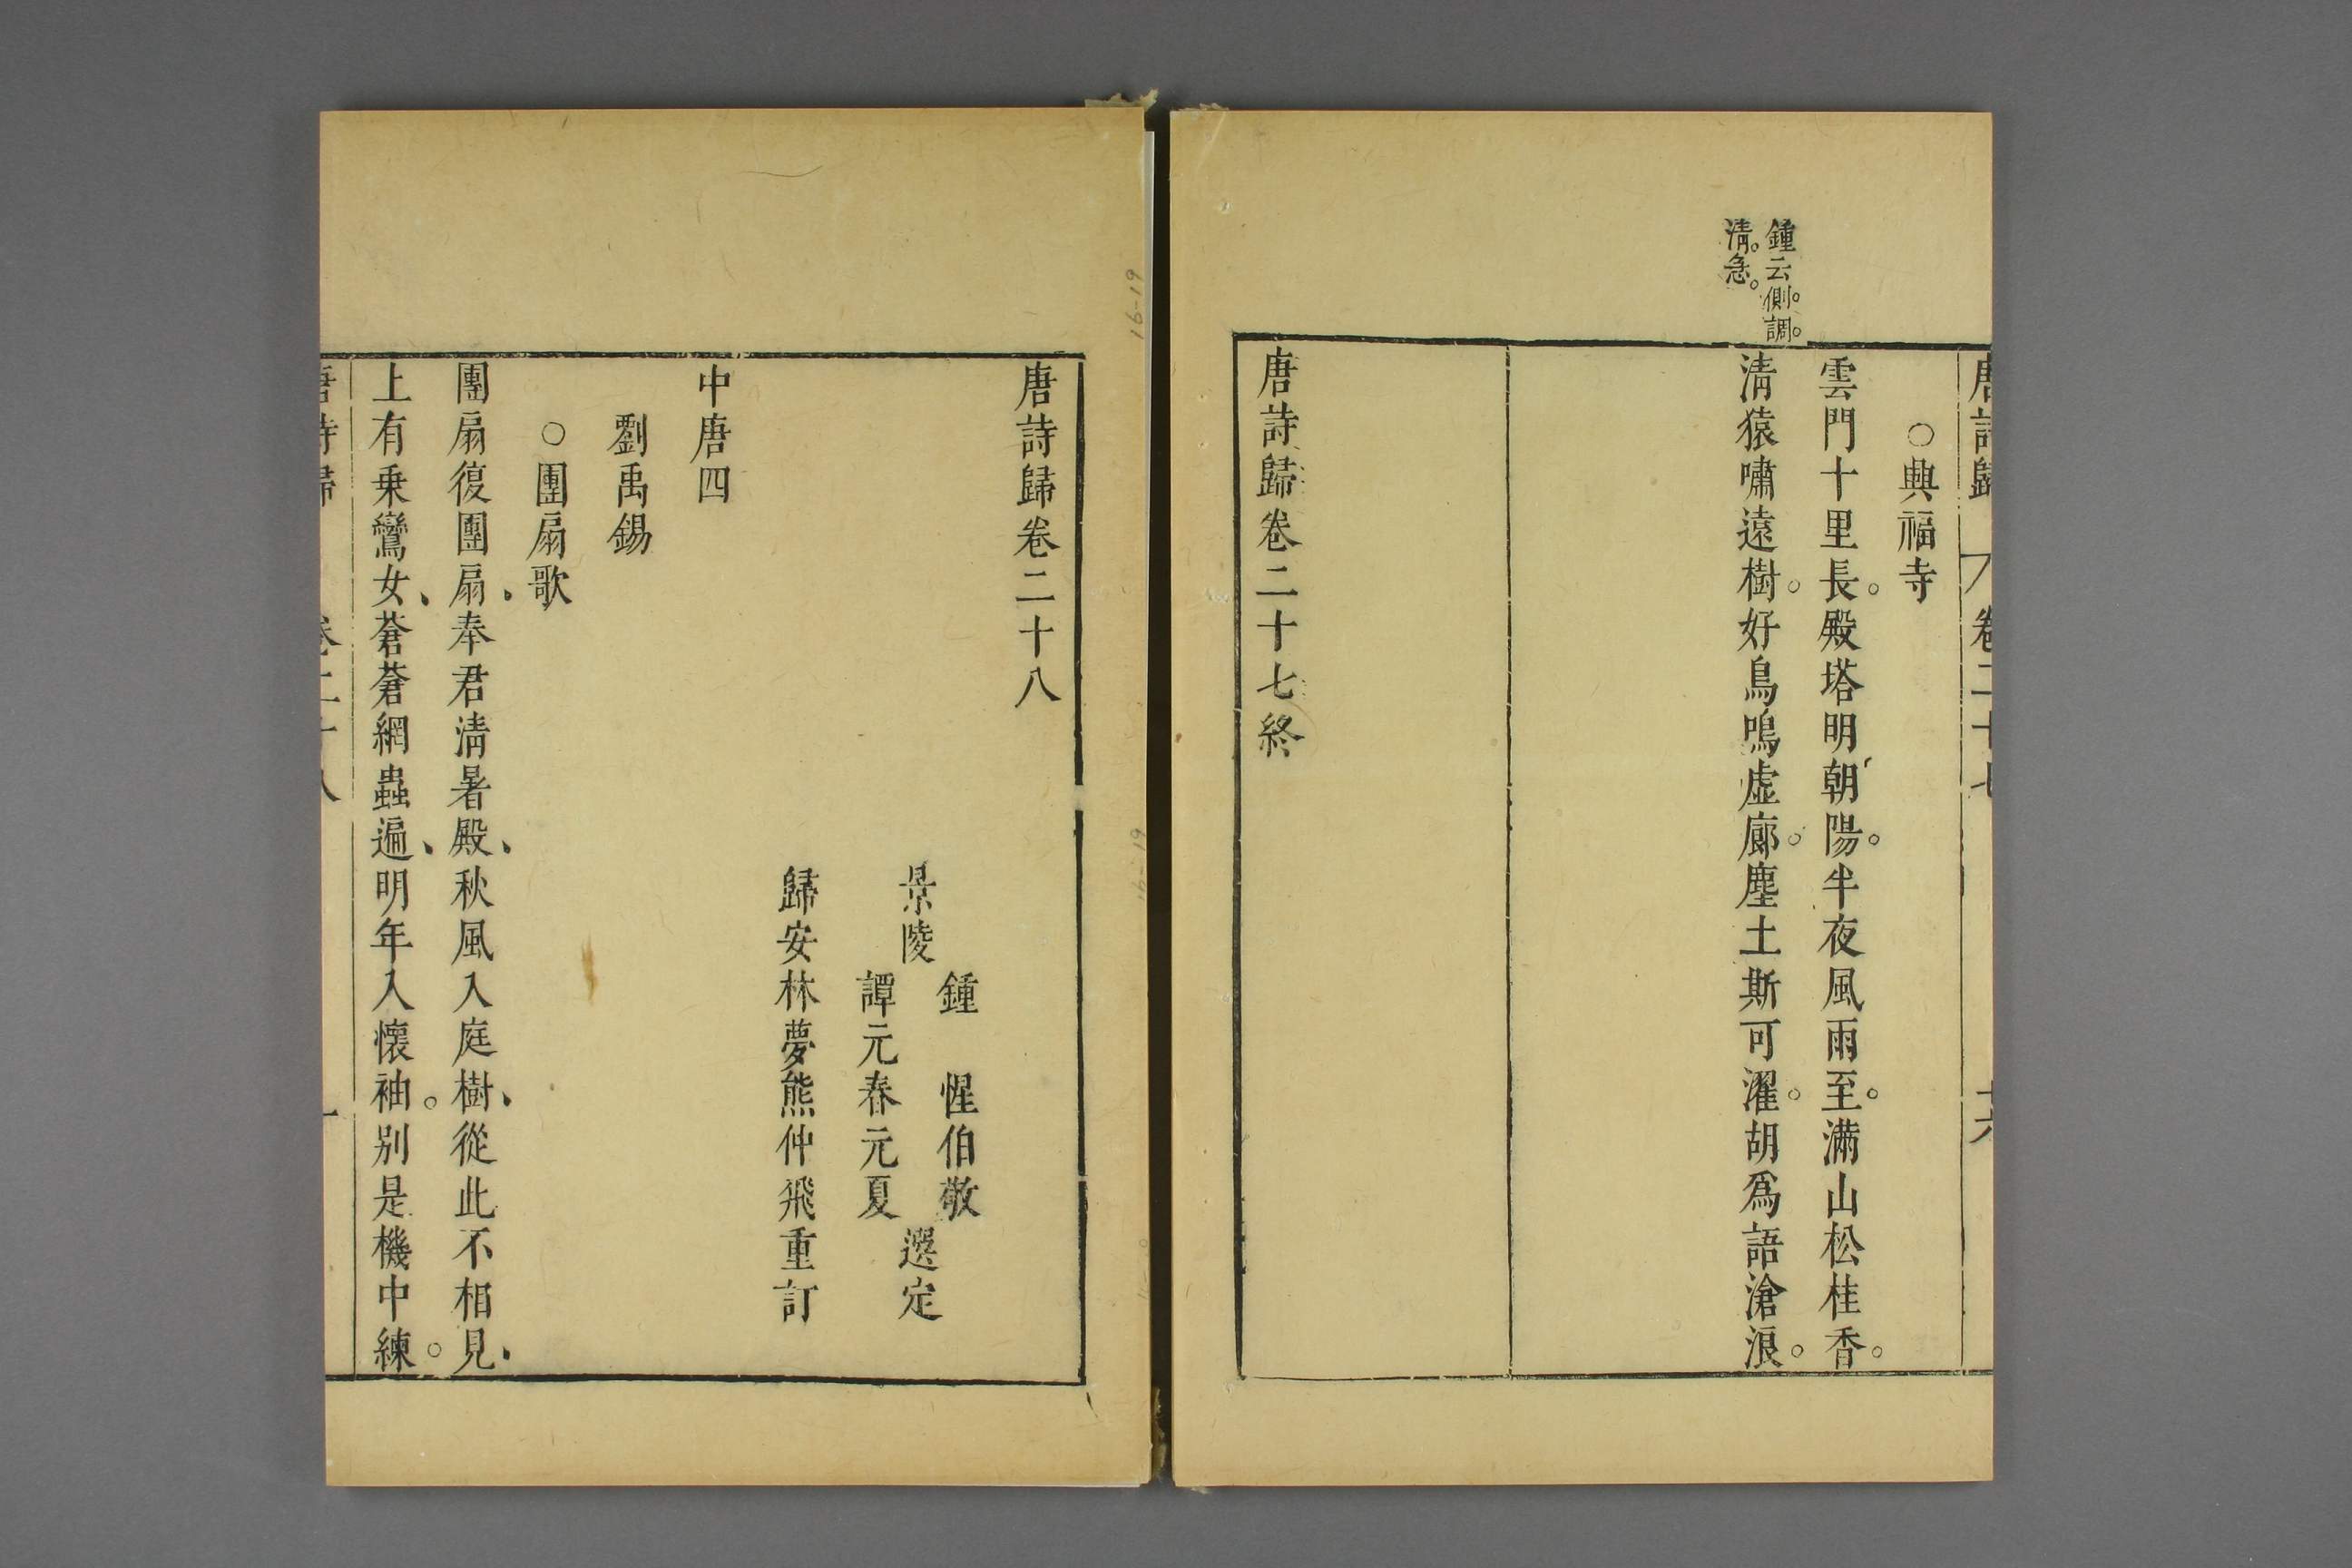 唐詩歸 卷二十七 十六
○興福寺
雲門十里長。殿塔明朝陽。半夜風雨至。滿山松桂香。
鍾云側。調。
清。急。
清猿嘯遠樹。好鳥鳴虛廊。塵土斯可濯。胡爲語滄浪。
唐詩歸卷二十七終
唐詩歸卷二十八
鍾 惺伯敬
景陵 選定
譚元春元夏
歸安林夢熊仲飛重訂
中唐四
劉禹錫
○團扇歌
團扇復團扇、奉君清暑殿、秋風入庭樹、從此不相見、
上有乗鸞女、蒼蒼網蟲遍、明年入懷袖。別是機中練。
唐詩歸 卷二十八 一
16-19
16-19